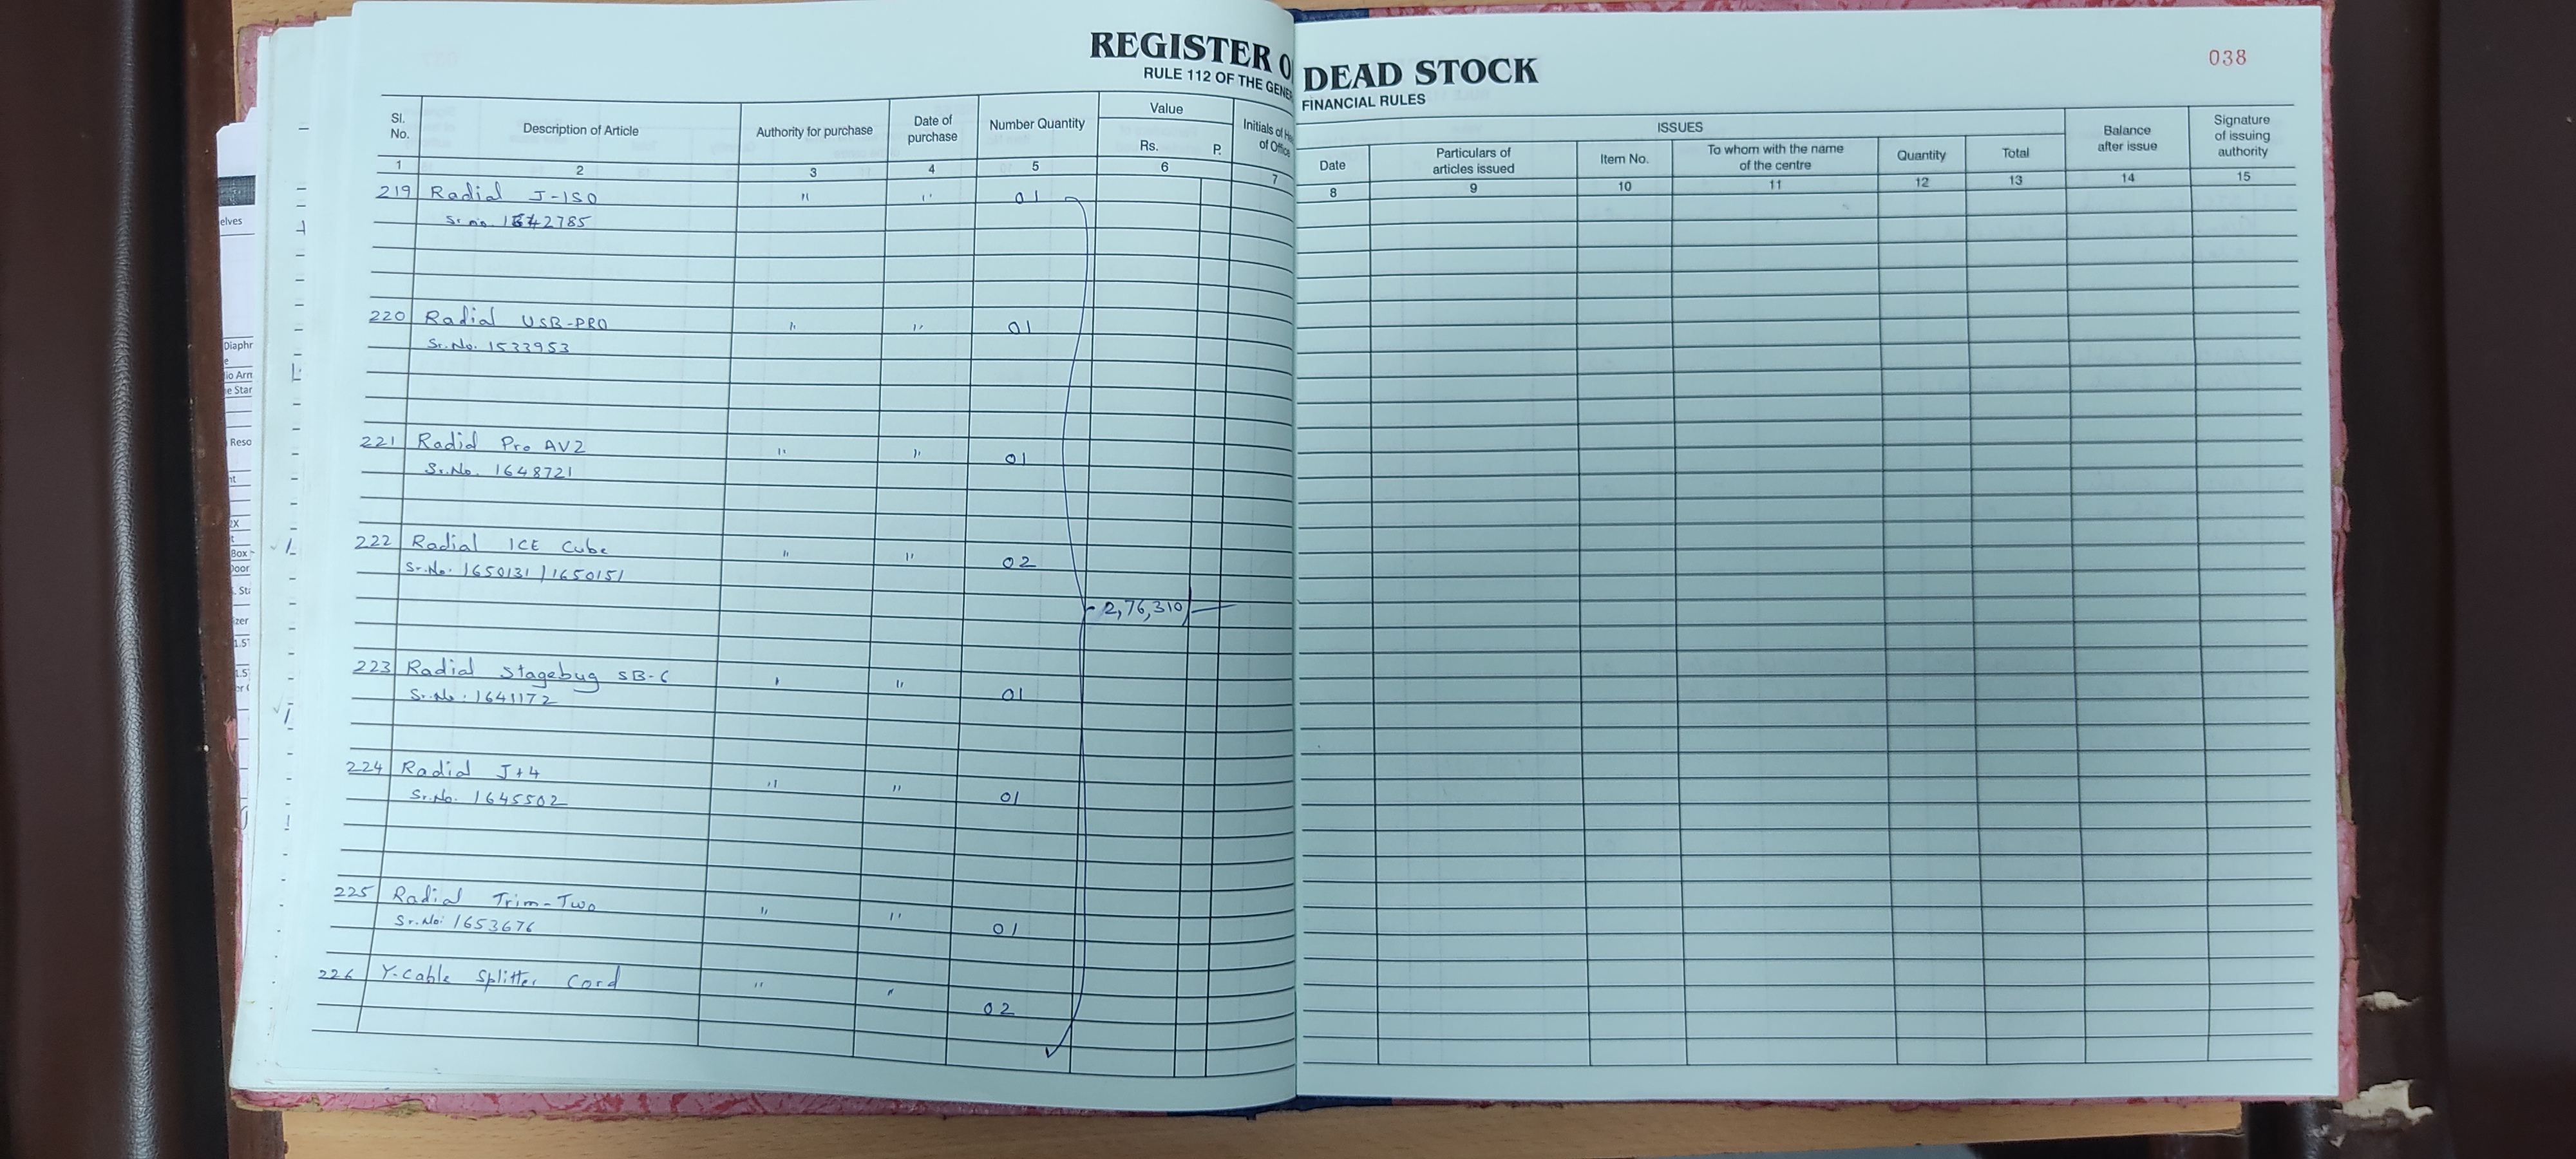 REGISTER O
RULE 112 OF THE GENE
DEAD STOCK
FINANCIAL RULES
038
Sl. No. Description of Article Authority for purchase Date of purchase Number Quantity Value Rs. P. Initials of H of Office
1 2 3 4 5 6 7
219 Radial J-ISO " " 01
Sr. no. 1642785
220 Radial USB-PRO " " 01
Sr. No. 1533953
221 Radial Pro AV2 " " 01
Sr. No. 1648721
222 Radial ICE Cube " " 02
Sr. No. 1650131 / 1650151
2,76,310
223 Radial Stagebug SB-6 " " 01
Sr. No. 1641172
224 Radial J+4 " " 01
Sr. No. 1645502
225 Radial Trim-Two " " 01
Sr. No: 1653676
226 Y-cable Splitter Cord " " 02
ISSUES
Date Particulars of articles issued Item No. To whom with the name of the centre Quantity Total Balance after issue Signature of issuing authority
8 9 10 11 12 13 14 15
elves
Diaphr
e
io Arm
e Star
Reso
nt
Box
Door
zer
1.5
1.5